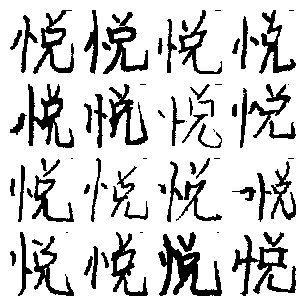 悦悦悦悦
悦悦悦悦
悦悦悦悦
悦悦悦悦